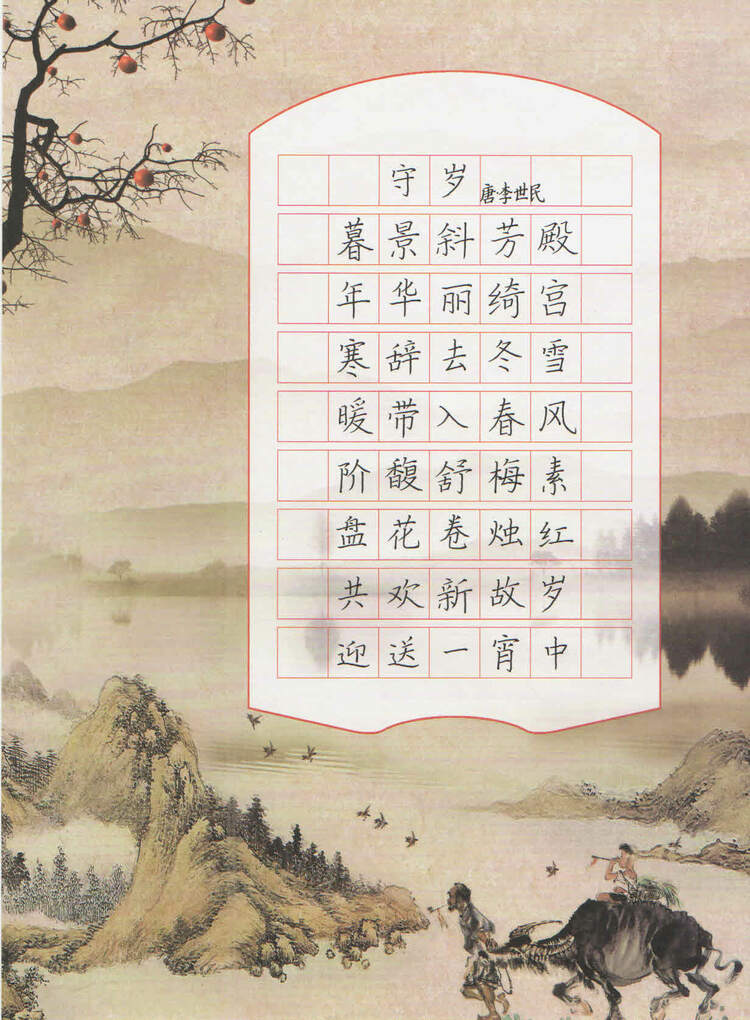 守岁 唐·李世民
暮景斜芳殿
年华丽绮宫
寒辞去冬雪
暖带入春风
阶馥舒梅素
盘花卷烛红
共欢新故岁
迎送一宵中